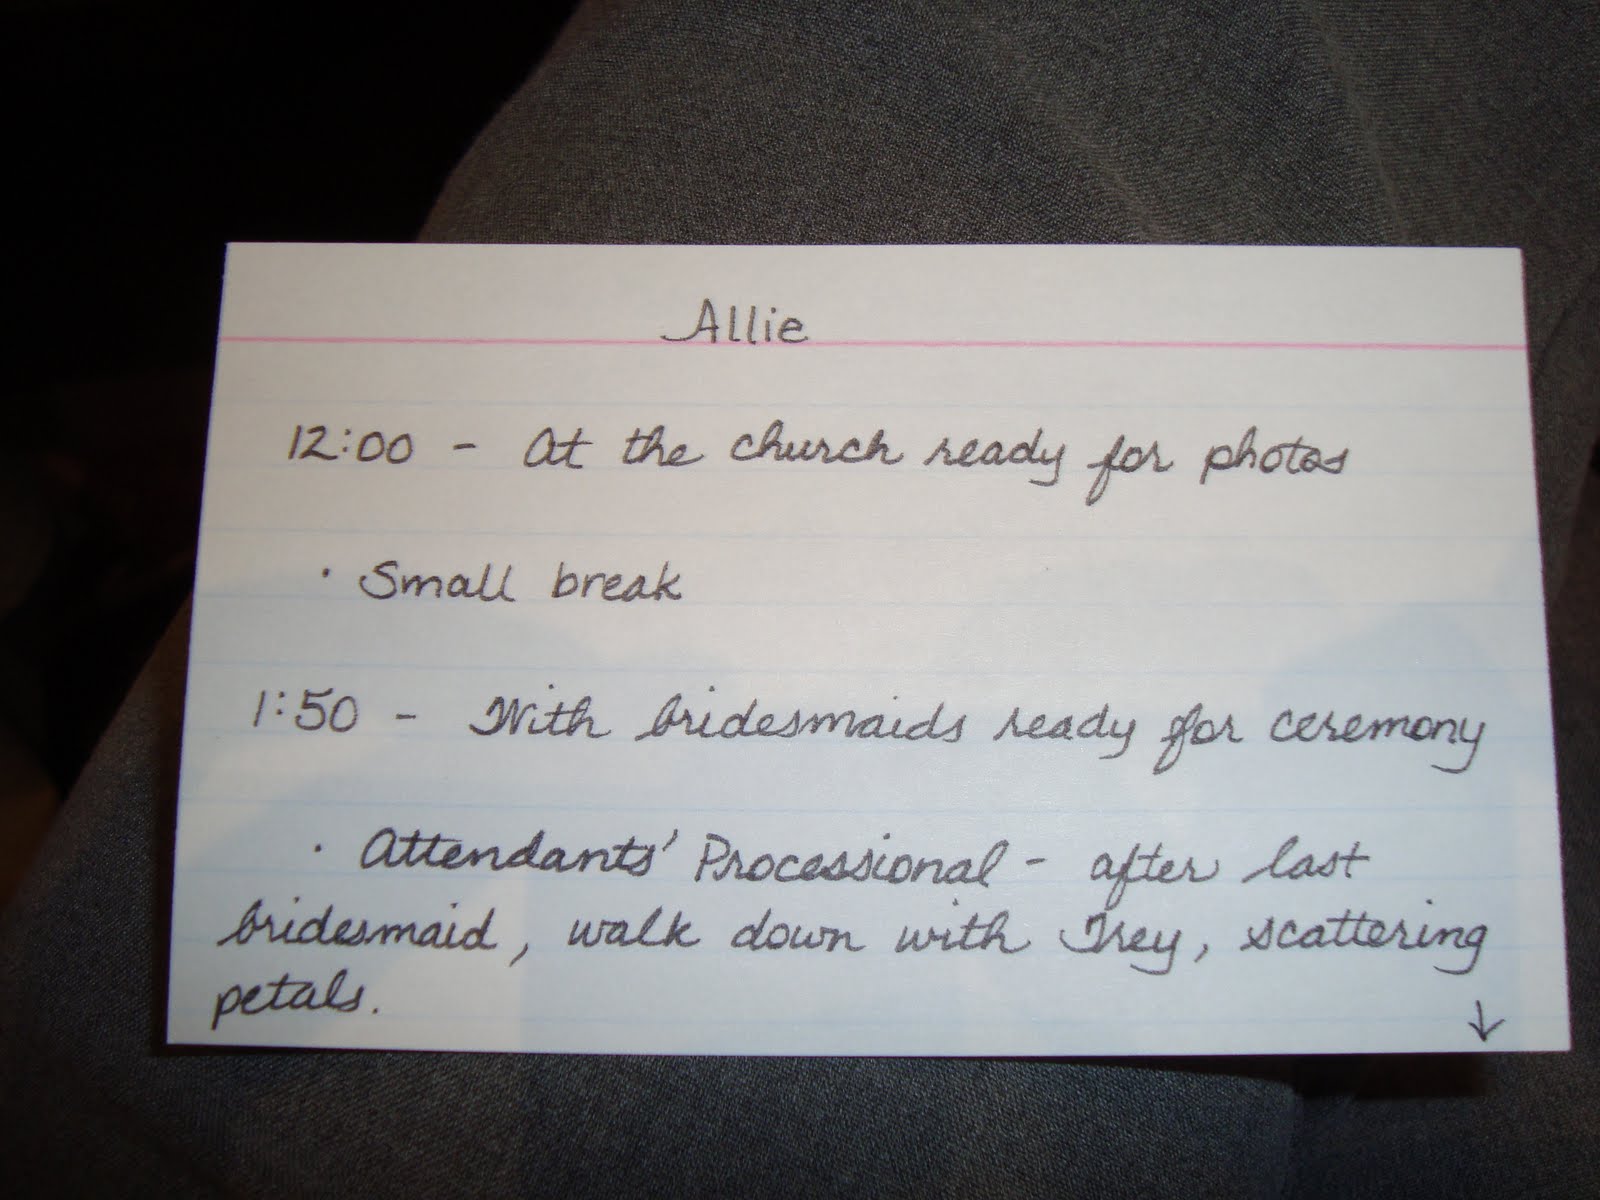 Allie
12:00 - At the church ready for photos
· Small break
1:50 - With bridesmaids ready for ceremony
· Attendants' Processional - after last
bridesmaid, walk down with Trey, scattering
petals.
↓